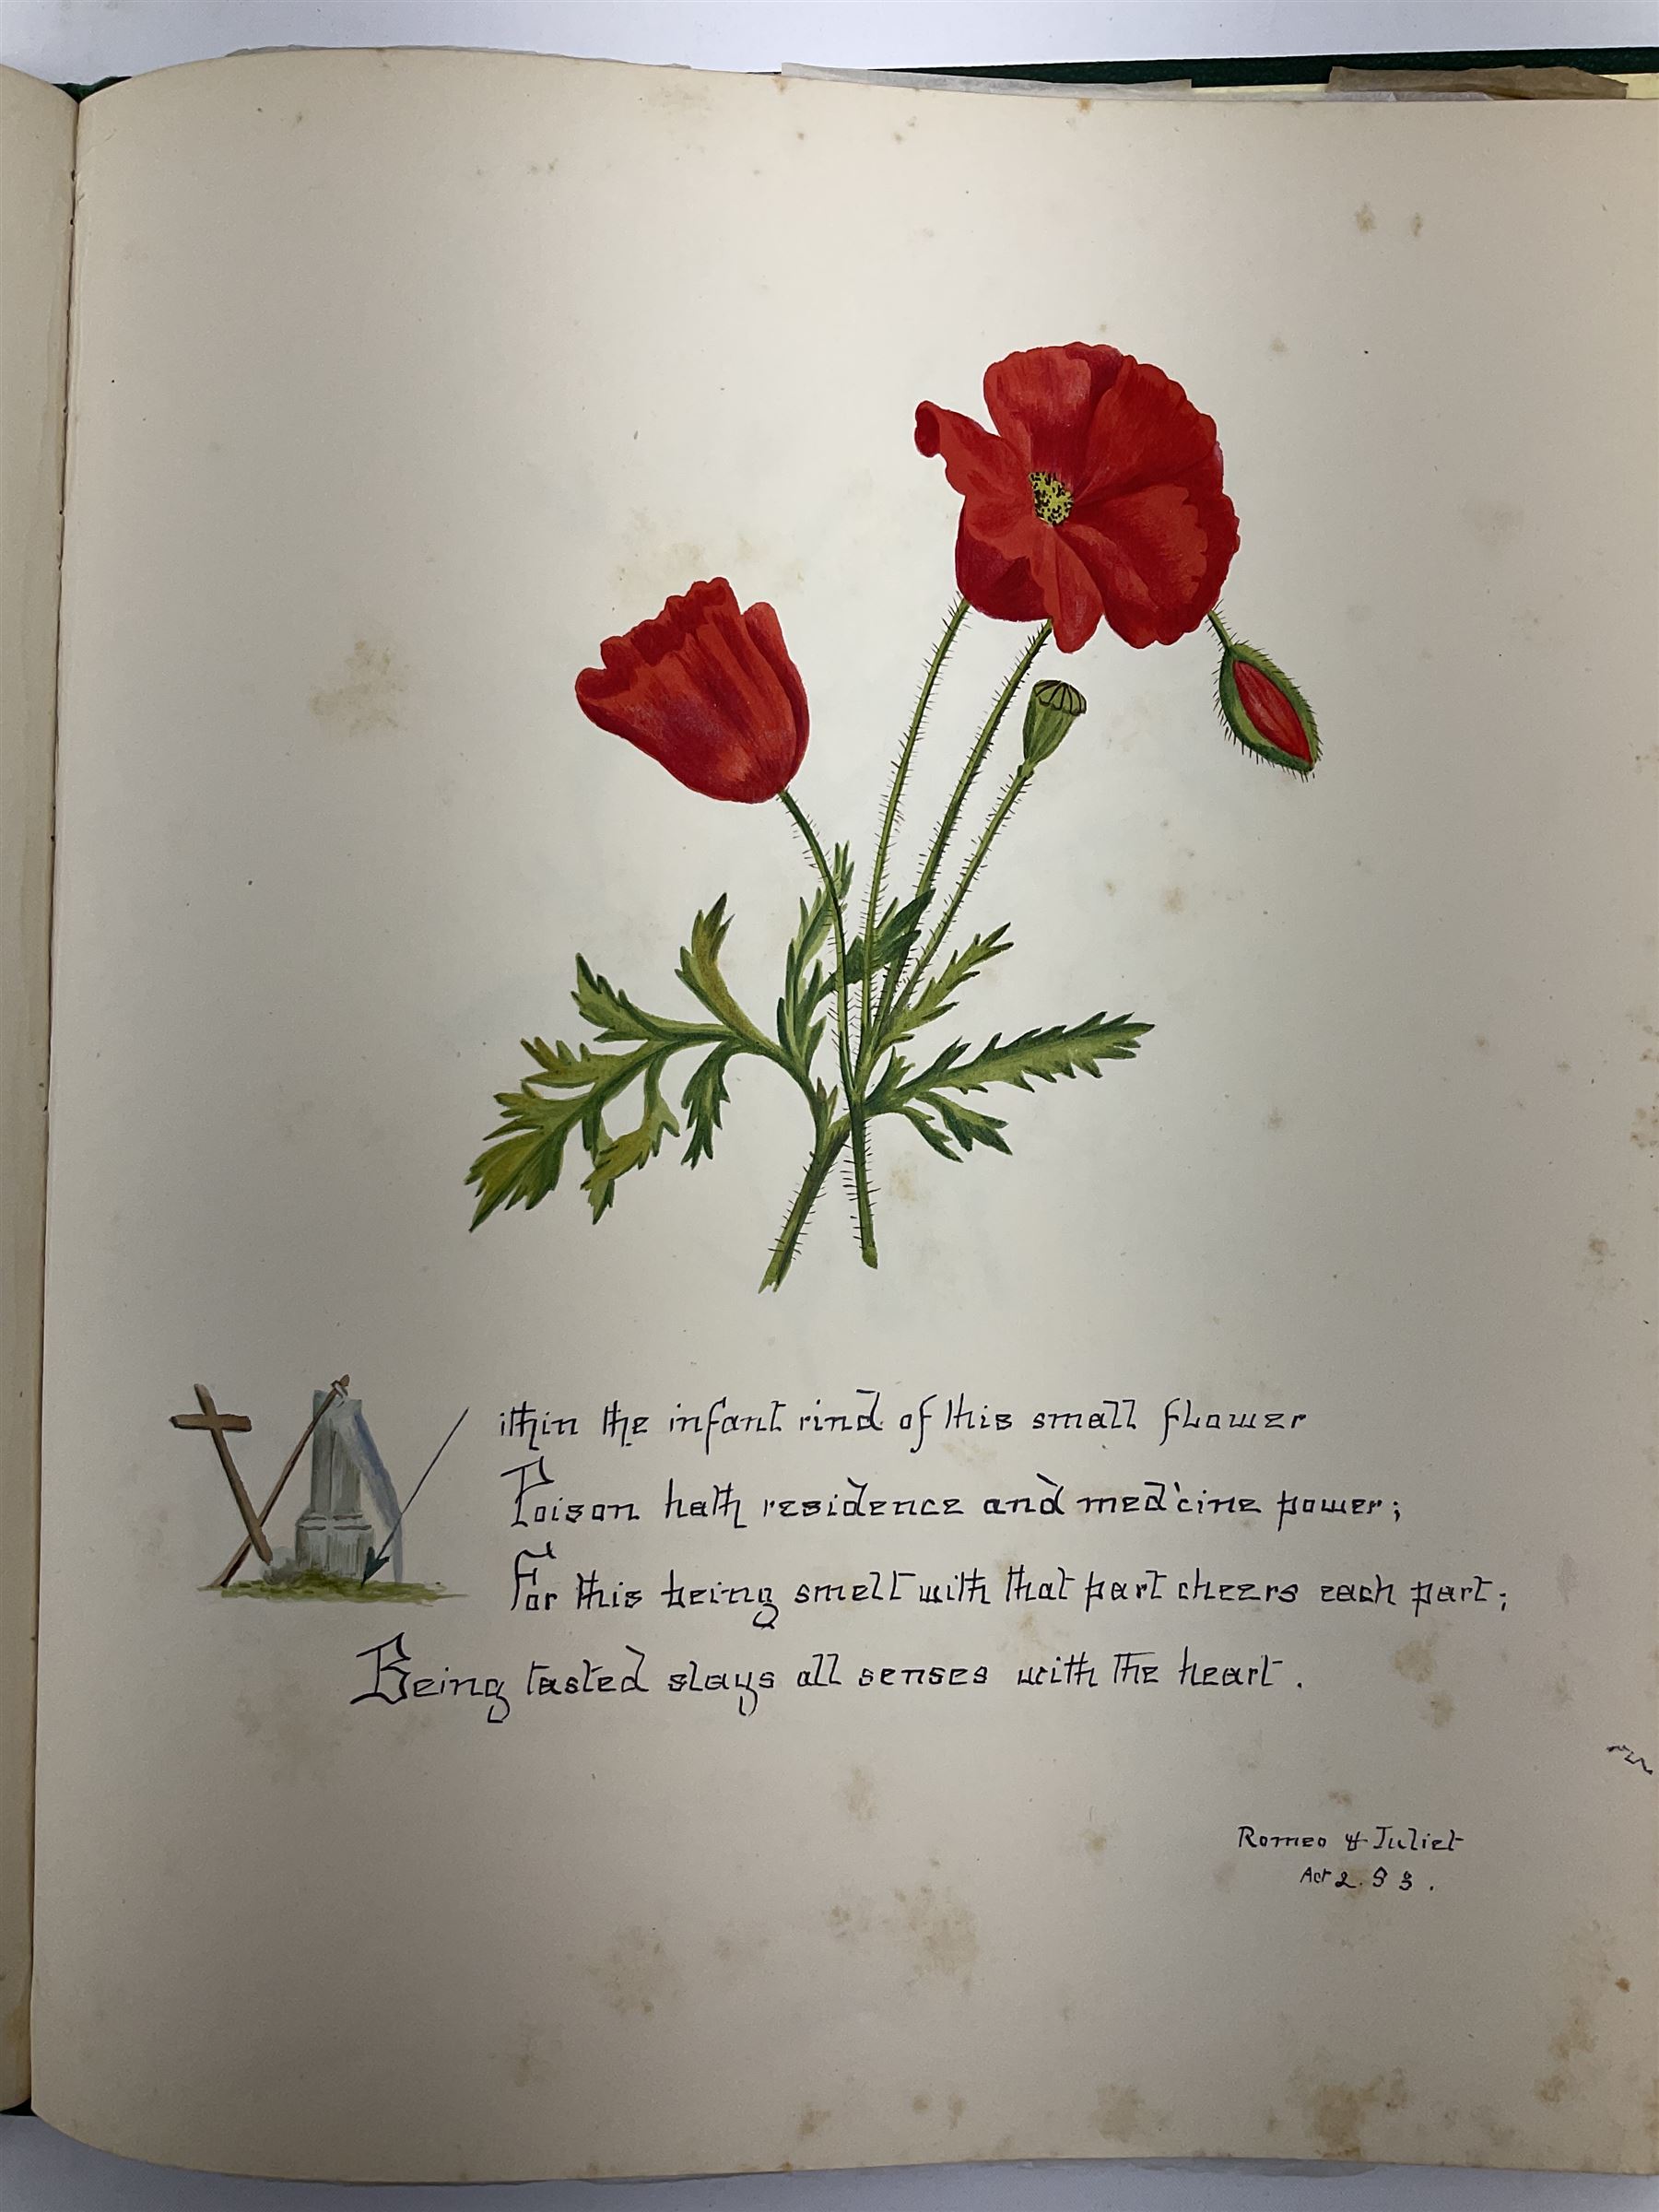 Within the infant rind of this small flower
Poison hath residence and med'cine power;
For this being smelt with that part cheers each part;
Being tasted slays all senses with the heart.
Romeo & Juliet
Act 2. S 3.